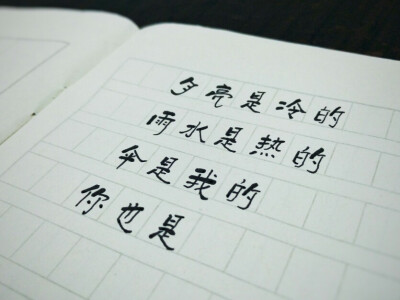 夕亮是冷的
雨水是热的
伞是我的
你也是